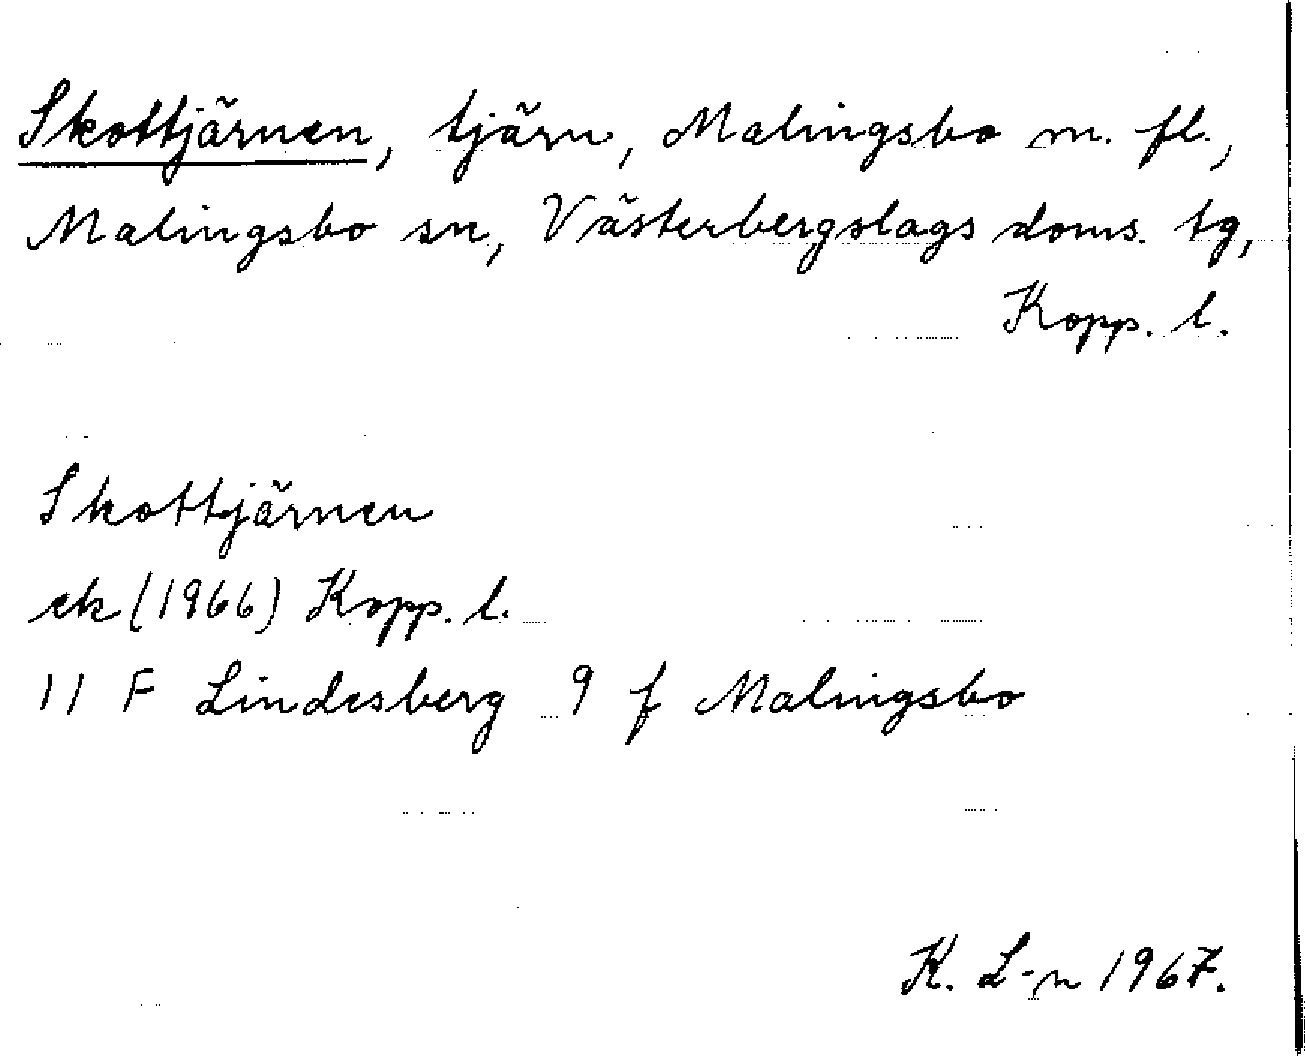 Skottjärnen, tjärn, Malingsbo m. fl.,
Malingsbo sn, Västerbergslags doms. tg,
Kopp. l.
Skottjärnen
ek (1966) Kopp. l.
11 F Lindesberg 9 f Malingsbo
K. L-n 1967.